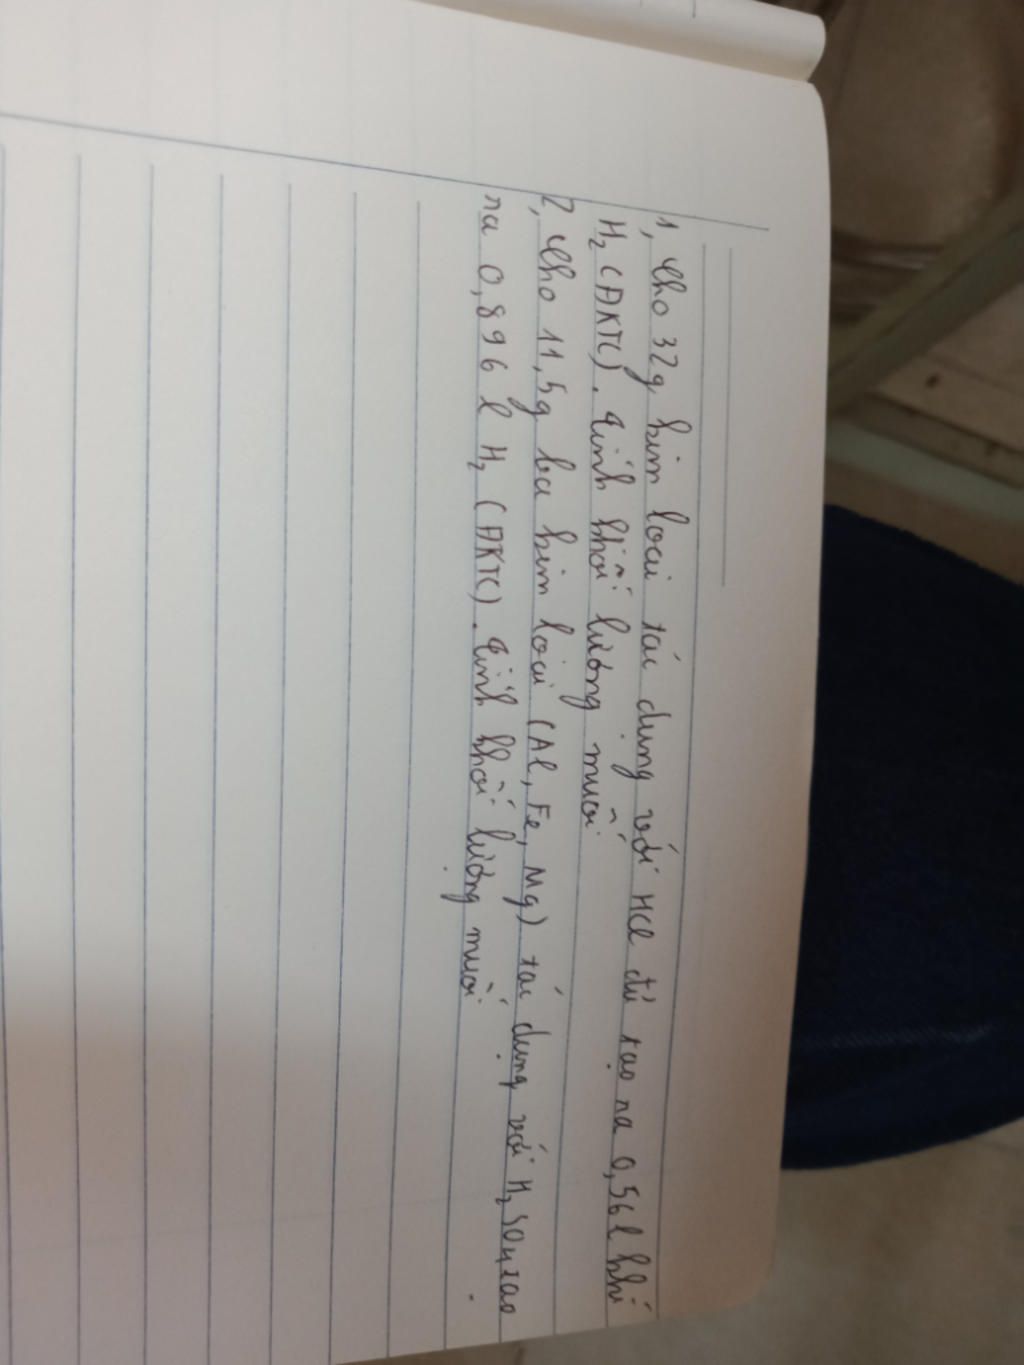 1, Cho 32g kim loại tác dụng với HCl đủ tạo ra 0,56 l khí
H₂ (ĐKTC). Tính khối lượng muối
2, Cho 11,5g ba kim loại (Al, Fe, Mg) tác dụng với H₂SO₄ tạo
ra 0,896 l H₂ (ĐKTC). Tính khối lượng muối